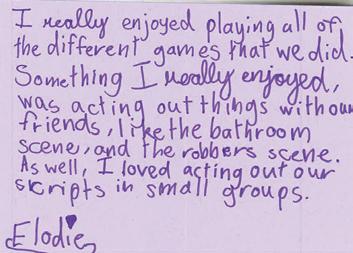 I really enjoyed playing all of
the different games that we did.
Something I really enjoyed,
was acting out things with our
friends, like the bathroom
scene, and the robbers scene.
As well, I loved acting out our
skripts in small groups.
Elodie